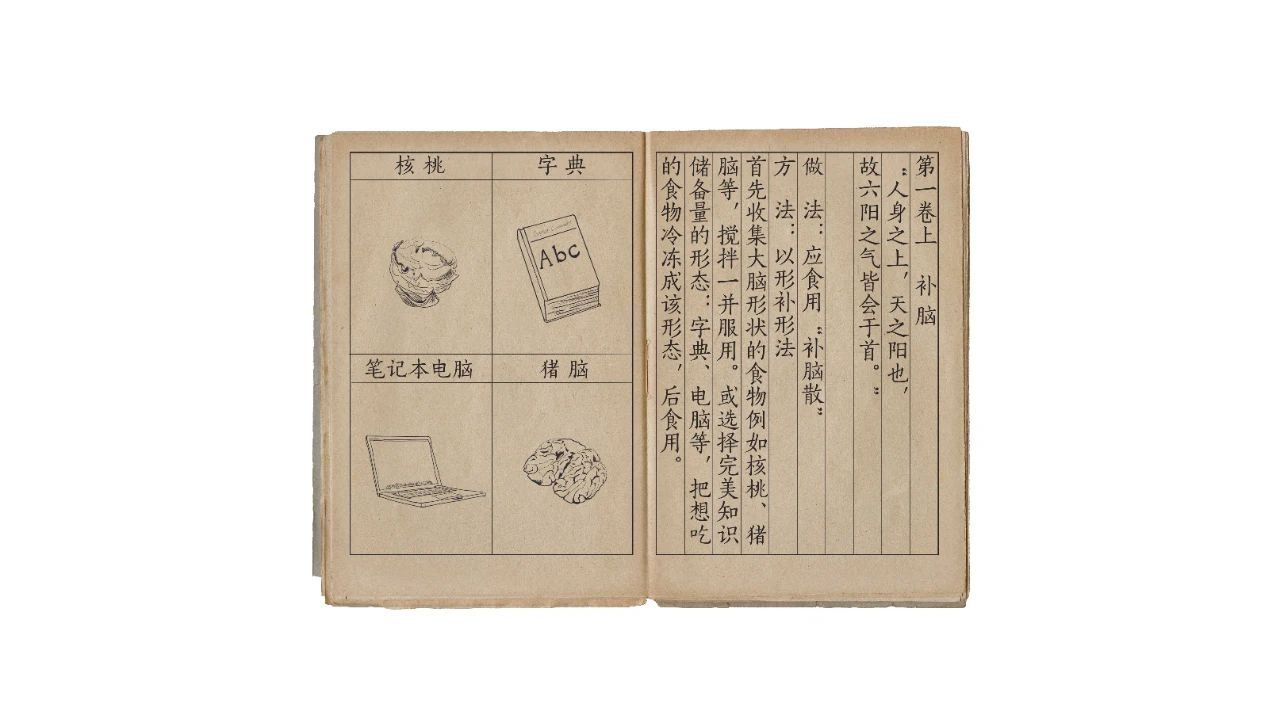 第一卷上 补脑
“人身之上，天之阳也，
故六阳之气皆会于首。”
做 法：应食用“补脑散”
方 法：以形补形法
首先收集大脑形状的食物例如核桃、猪
脑等，搅拌一并服用。或选择完美知识
储备量的形态：字典、电脑等，把想吃
的食物冷冻成该形态，后食用。
核桃
字典
Abc
笔记本电脑
猪脑